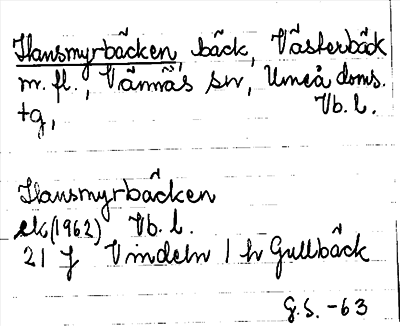 Hansmyrbäcken, bäck, Västerbäck
m. fl., Vännäs sn, Umeå doms.
tg, Vb. l.
Hansmyrbäcken
ek (1962) Vb. l.
21 J Vindeln 1 h Gullbäck
G.S. -63